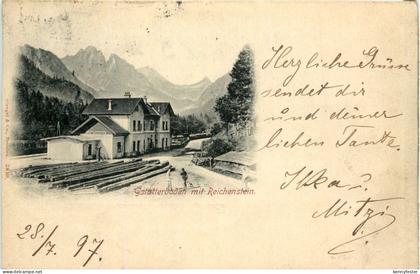 Herzliche Grüsse
sendet dir
und deiner
lichen Tante
Ilka
Mitzi
Gstatterboden mit Reichenstein.
28/7. 97.
www.ansichtskartenversand.com